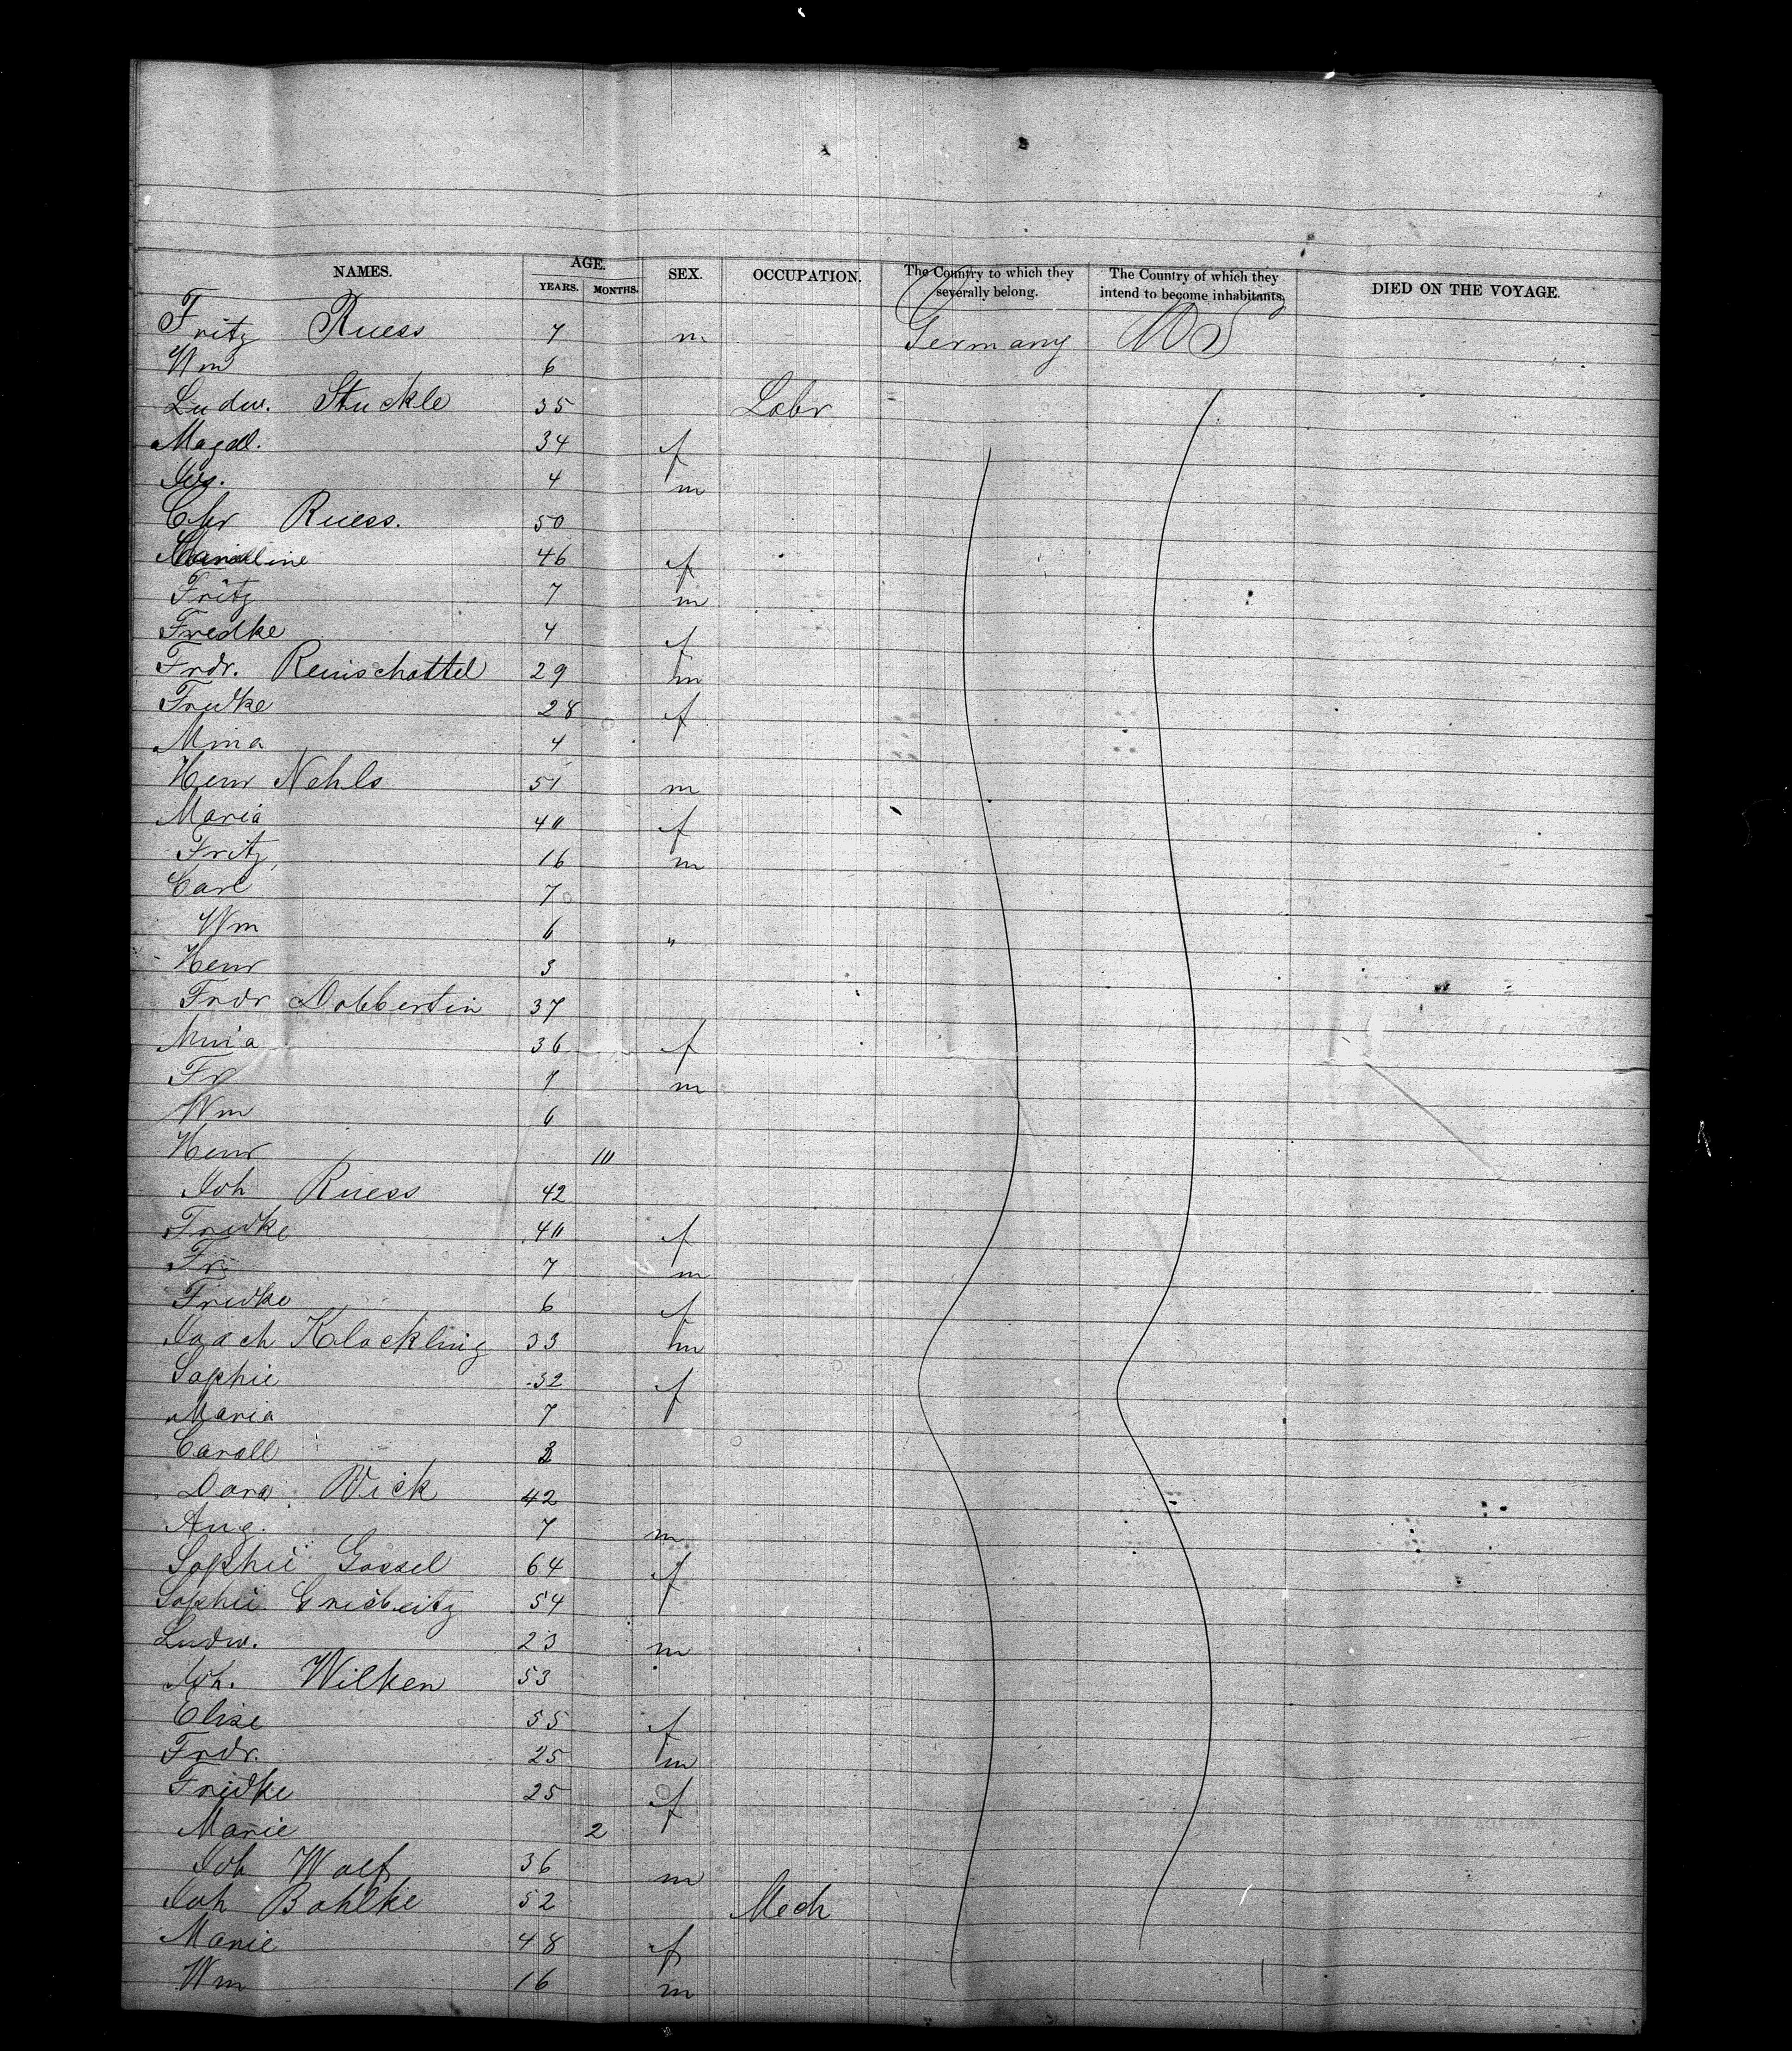 NAMES. AGE. YEARS. MONTHS. SEX. OCCUPATION. The Country to which they severally belong. The Country of which they intend to become inhabitants. DIED ON THE VOYAGE.
Fritz Ruess 7 m Germany US
Wm 6
Ludw. Stuckle 35 Labr
Magdl. 34 f
Jos. 4 m
Chr Ruess. 50
46 f
Fritz 7 m
Fredke 4 f
Frdr. Reinschattel 29 m
Fredke 28 f
Mina 4
Henr Nehls 51 m
Maria 40 f
Fritz, 16 m
Carl 7
Wm 6 "
Henr 3
Frdr Dobbertin 37
Mina 36 f
Fr 7 m
Wm 6
Henr 10
Joh Ruess 42
Fredke 40 f
Fr 7 m
Fredke 6 f
Joach Klockling 33 m
Sophie 32 f
Maria 7
Caroll
Dora Wick 42
Aug. 7 m
Sophie Gossel 64 f
Sophie Griebeitz 54
Ludw. 23 m
Joh. Wilken 53
Elise 55 f
Frdr. 25 m
Fredke 25 f
Marie 2
Joh Wolf 36 m
Joh Bahlke 52 Mech
Marie 48 f
Wm 16 m